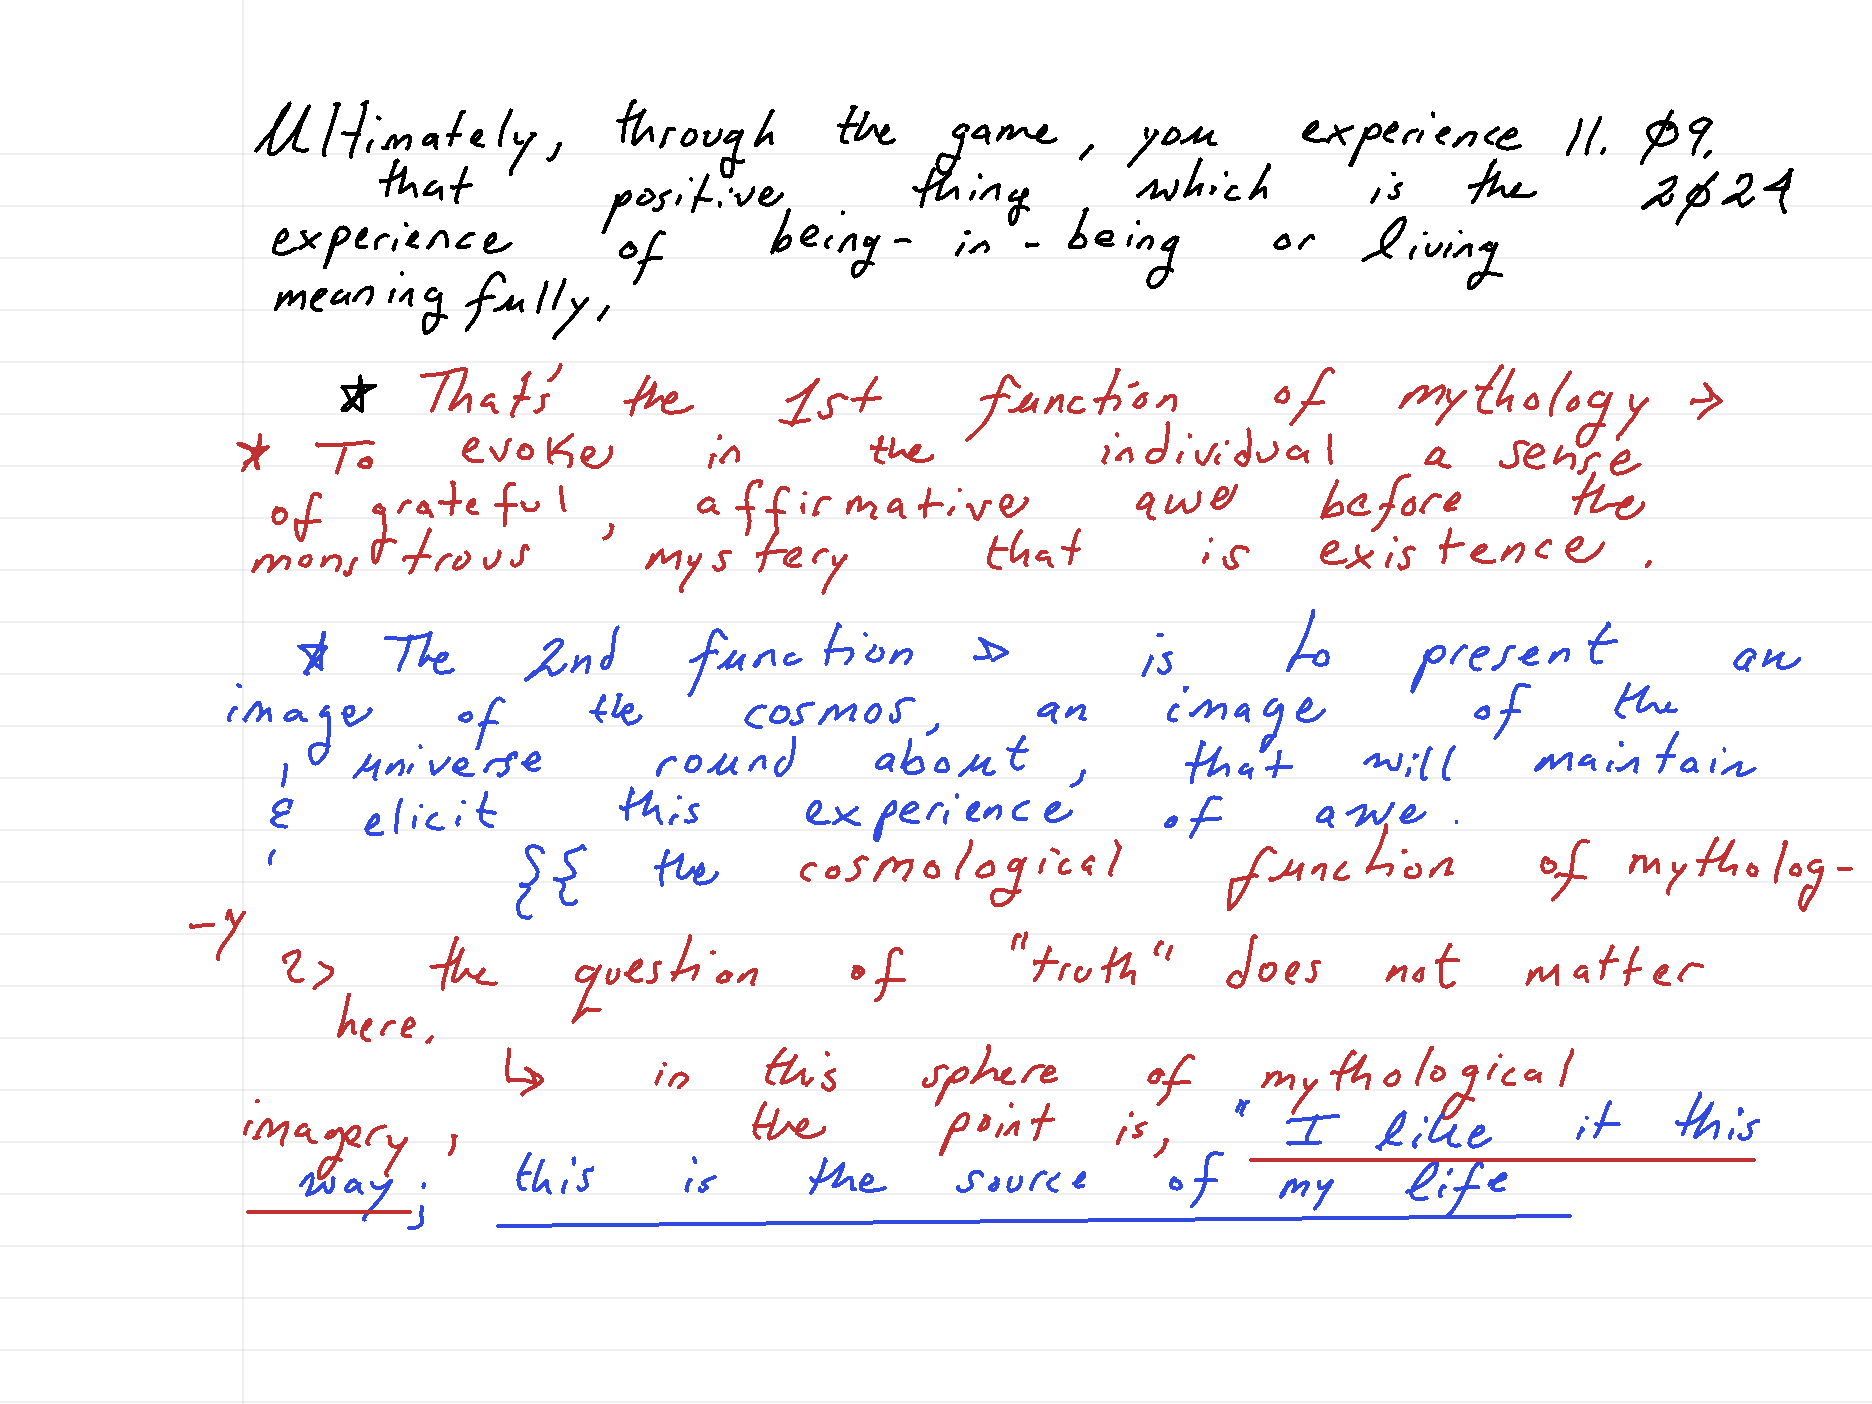 Ultimately, through the game, you experience 11. Ø9.
that positive thing which is the 2Ø24
experience of being-in-being or living
meaningfully,
☆ That's the 1st function of mythology →
* To evoke in the individual a sense
of grateful, affirmative awe before the
monstrous mystery that is existence.
☆ The 2nd function > is to present an
image of the cosmos, an image of the
universe round about, that will maintain
& elicit this experience of awe.
{{ the cosmological function of mytholog-
-y
2> the question of "truth" does not matter
here.
↳ in this sphere of mythological
imagery, the point is, "I like it this
way; this is the source of my life